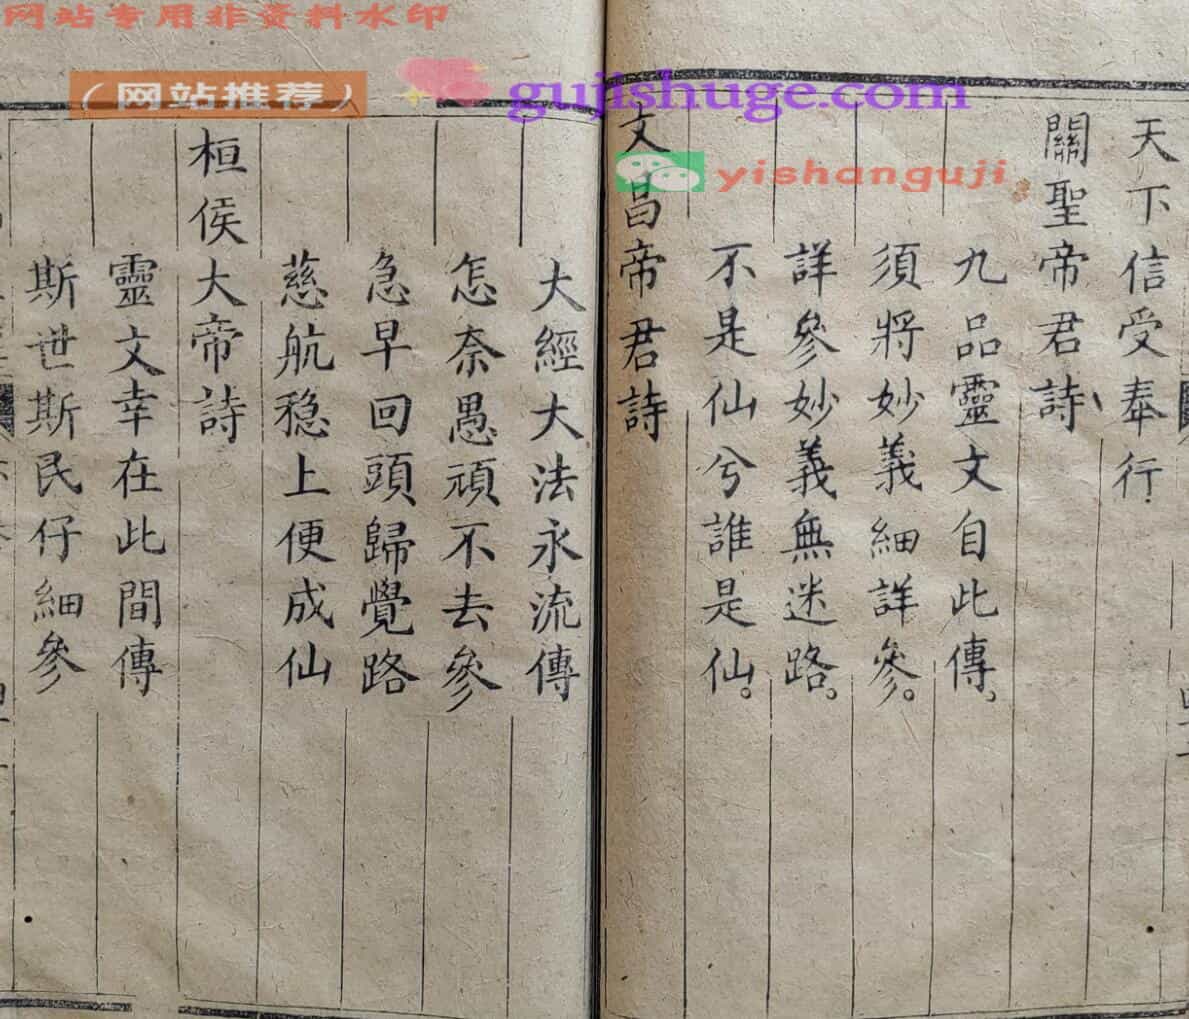 网站专用非资料水印
（网站推荐）
gujishuge.com
yishanguji
天下信受奉行
關聖帝君詩
九品靈文自此傳。
須將妙義細詳參。
詳參妙義無迷路。
不是仙兮誰是仙。
文昌帝君詩
大經大法永流傳
怎奈愚頑不去參
急早回頭歸覺路
慈航稳上便成仙
桓侯大帝詩
靈文幸在此間傳
斯世斯民仔細參